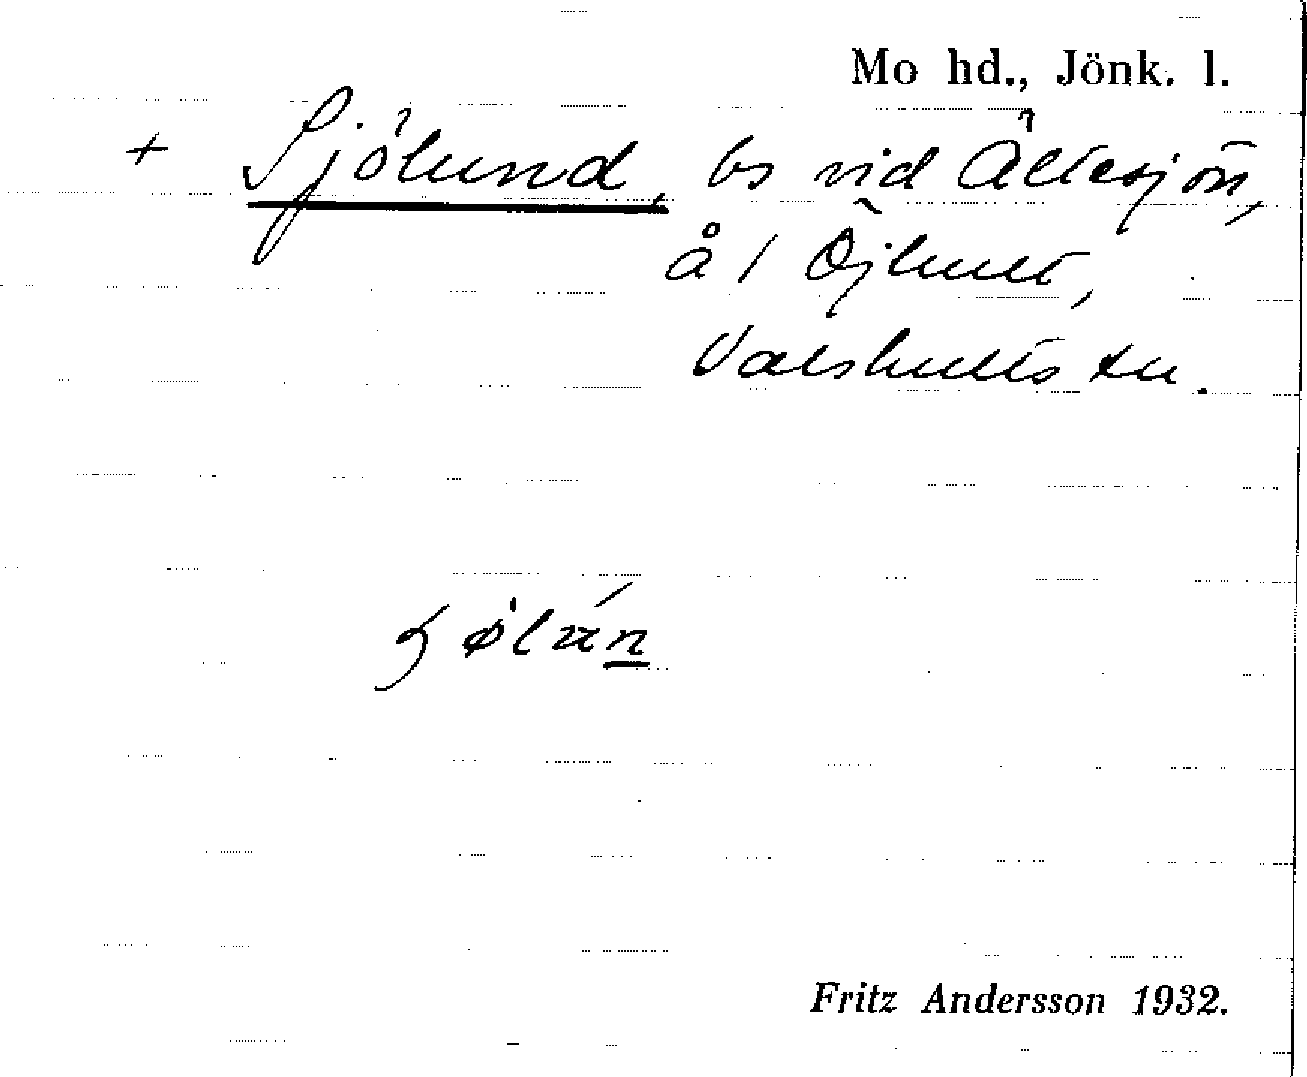 Mo hd., Jönk. l.
+ Sjölund, bs vid Ältesjön,
å 1 Öjhult,
Valshults sn.
Fritz Andersson 1932.